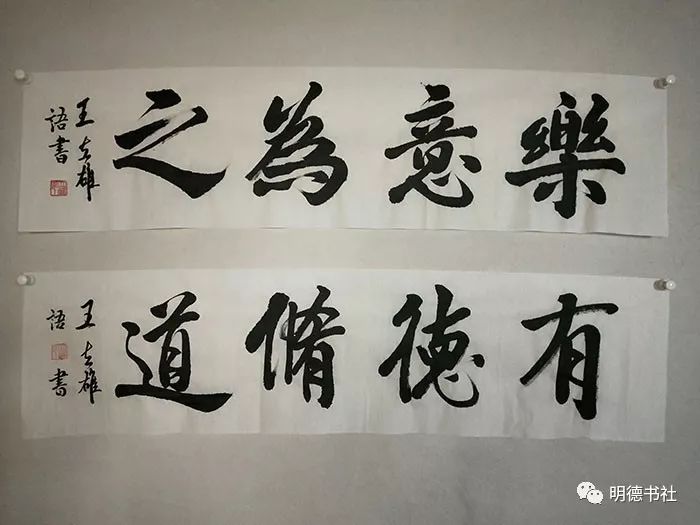 樂意為之
王雄
語書
有德脩道
王雄
語書
明德书社